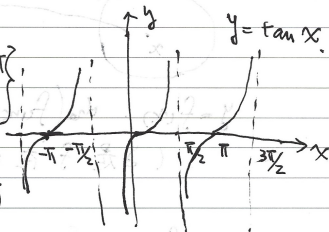 y
y = tan x
-π -π/2 π/2 π 3π/2 x